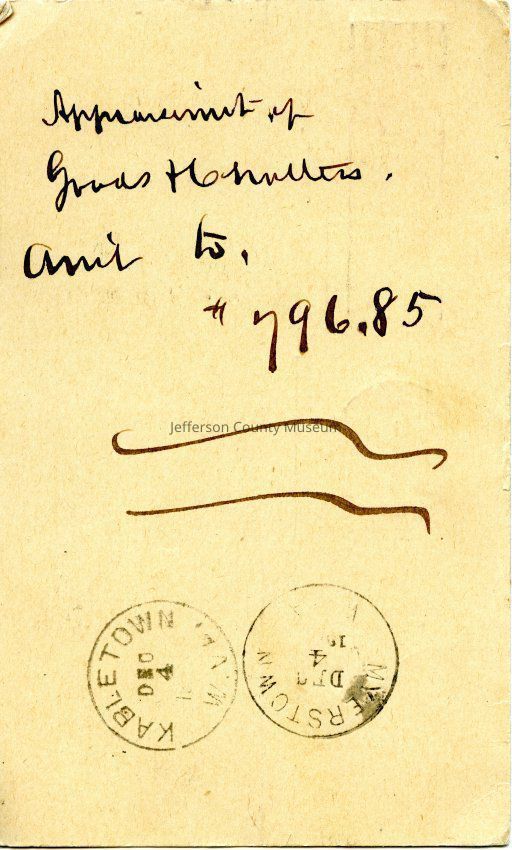 Appraisment of
Goods & Chattles.
Amt to.
# 796.85
Jefferson County Museum
KABLETOWN W.VA.
DEC
4
MYERSTOWN
DEC
4
19